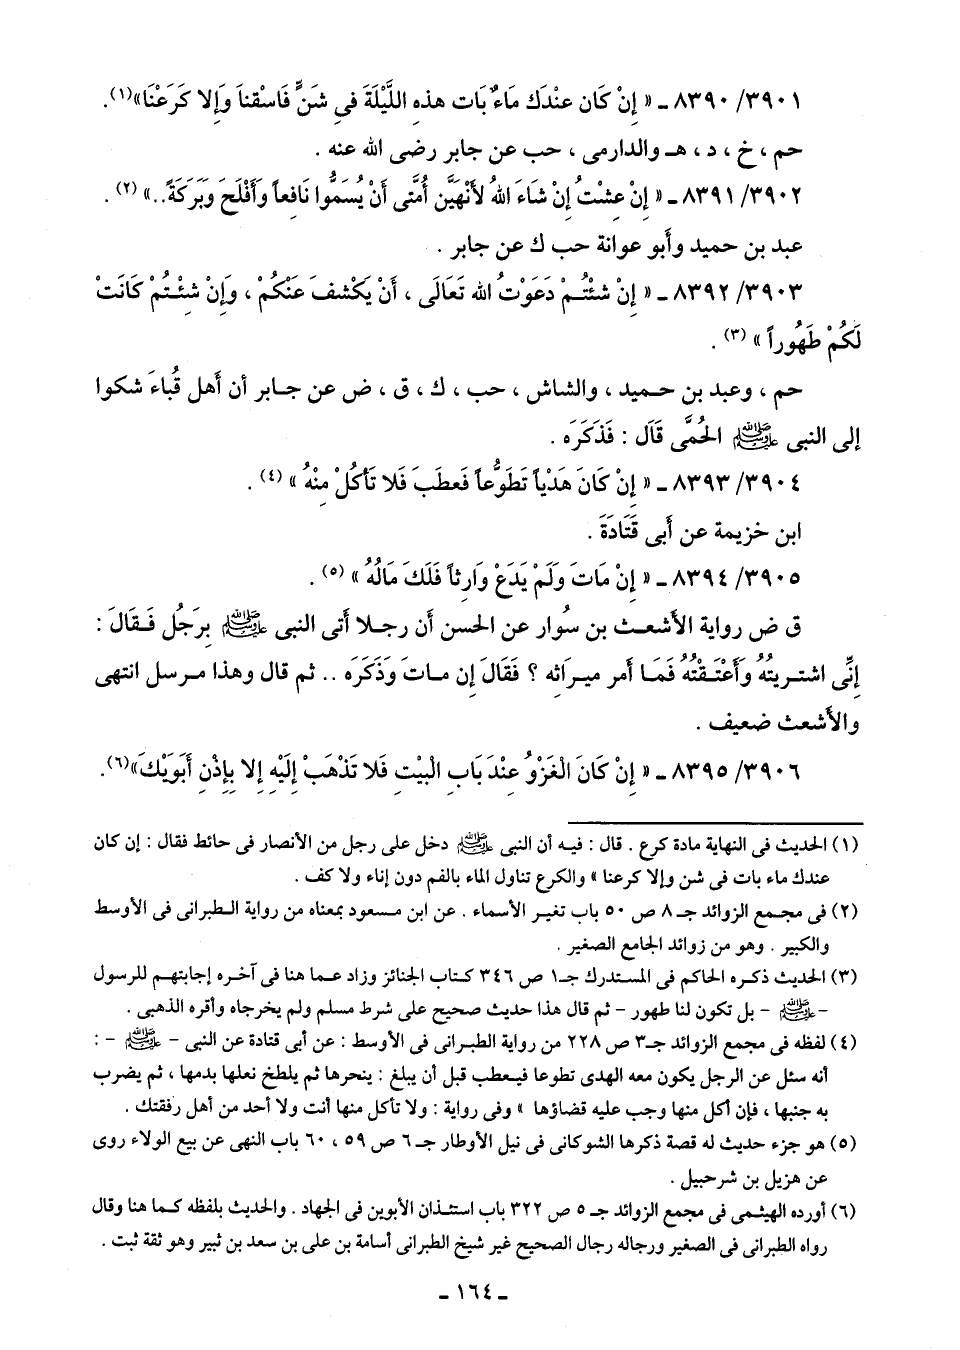 ٨٣٩٠/٣٩٠١ ـ « إِنْ كَان عنْدَك مَاءٌ بَات هذِه اللَّيْلَةَ فِي شَنٍّ فَاسْقناَ وَإِلا كَرَعْنَا»(١).
حم ، خ ، د ، هـ والدارمى ، حب عن جابر رضى الله عنه .
٨٣٩١/٣٩٠٢ ـ « إِنْ عِشْتُ إِنْ شَاءَ اللهُ لأَنْهَيَنَّ أُمَّتى أَنْ يُسَمُّوا نَافِعاً وَأَفْلَحَ وَبَرَكَةً..» (٢) .
عبد بن حميد وأبو عوانة حب ك عن جابر .
٨٣٩٢/٣٩٠٣ ـ « إِنْ شئْتُـمْ دَعَوْتُ الله تَعَالَى ، أَنْ يَكْشفَ عَنْكُمْ ، وَإِنْ شئْتُـمْ كَانَتْ
لَكُمْ طَهُوراً » (٣) .
حم ، وعبد بن حـميد ، والشاش ، حب ، ك ، ق ، ض عن جـابر أن أهل قُباءَ شكوا
إلى النبى ﷺ الحُمَّى قَال : فَذَكَرَه .
٨٣٩٣/٣٩٠٤ ـ « إِنْ كَانَ هَدْياً تَطَوُّعاً فَعطَبَ فَلا تَأكُلْ مِنْهُ » (٤) .
ابن خزيمة عن أبى قَتَادَةَ .
٨٣٩٤/٣٩٠٥ ـ « إِنْ مَاتَ وَلَمْ يَدَعْ وَارِثاً فَلَكَ مَالُهُ » (٥) .
ق ض رواية الأشعـث بن سُوار عن الحسن أن رجـلا أتى النبى ﷺ برَجُل فَـقَالَ :
إِنِّى اشتـريتُهُ وَأَعْتَـقْتُهُ فَمَـا أمر ميـرَاثه ؟ فَقَالَ إن مـاتَ وَذَكَرَه .. ثم قال وهذا مـرسل انتهى
والأشعث ضعيف .
٨٣٩٥/٣٩٠٦ ـ « إِنْ كَانَ الْغَزْوُ عِنْدَ بَابِ الْبَيْتِ فَلا تَذْهَبْ إِلَيْهِ إِلا بِإِذْنِ أَبَوَيْكَ»(٦).
(١) الحديث فى النهاية مادة كرع . قال : فيـه أن النبى ﷺ دخل على رجل من الأنصار فى حائط فقال : إن كان
عندك ماء بات فى شن وإلا كرعنا » والكرع تناول الماء بالفم دون إناء ولا كف .
(٢) فى مجـمع الزوائد جـ٨ ص ٥٠ باب تغيـر الأسماء . عن ابن مـسعود بمعناه من رواية الـطبرانى فى الأوسط
والكبير . وهو من زوائد الجامع الصغير .
(٣) الحديث ذكـره الحاكم فى المستدرك جـ١ ص ٣٤٦ كتاب الجنائز وزاد عـما هنا فى آخـره إجابتهـم للرسول
-ﷺ - بل تكون لنا طهور - ثم قال هذا حديث صحيح على شرط مسلم ولم يخرجاه وأقره الذهبى .
(٤) لفظه فى مجمع الزوائد جـ٣ ص ٢٢٨ من رواية الطبرانى فى الأوسط : عن أبى قتادة عن النبى - ﷺ - :
أنه سئل عن الرجل يكون معه الهدى تطوعا فيـعطب قبل أن يبلغ : ينحرها ثم يلطخ نعلها بدمها ، ثم يضرب
به جنبها ، فإن أكل منها وجب عليه قضاؤها » وفى رواية : ولا تأكل منها أنت ولا أحد من أهل رفقتك .
(٥) هو جزء حديث له قصة ذكرها الشوكانى فى نيل الأوطار جـ٦ ص ٥٩ ، ٦٠ باب النهى عن بيع الولاء روى
عن هزيل بن شرحبيل .
(٦) أورده الهيثمى فى مجمع الزوائد جـ ٥ ص ٣٢٢ باب استئذان الأبوين فى الجهاد . والحديث بلفظه كـما هنا وقال
رواه الطبرانى فى الصغير ورجاله رجال الصحيح غير شيخ الطبرانى أسامة بن على بن سعد بن ثبير وهو ثقة ثبت .
ـ ١٦٤ ـ